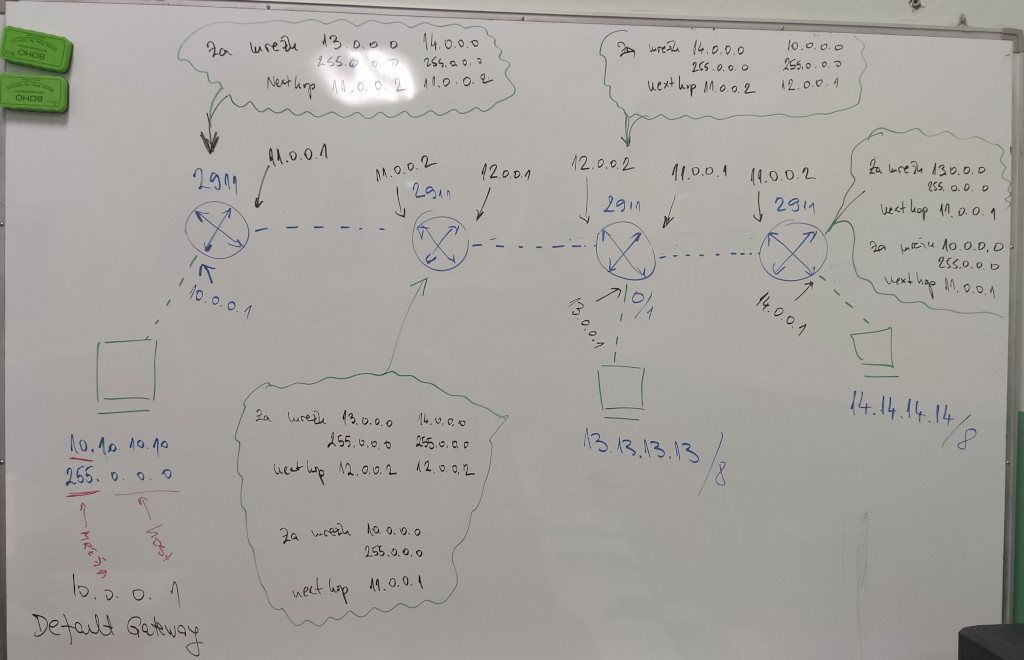 BOHO
BOHO
Za mrežu 13.0.0.0 14.0.0.0
255.0.0.0 255.0.0.0
Next hop 11.0.0.2 11.0.0.2
Za mrežu 14.0.0.0 10.0.0.0
255.0.0.0 255.0.0.0
next hop 11.0.0.2 12.0.0.1
11.0.0.1
11.0.0.2
12.0.0.1
12.0.0.2
11.0.0.1
11.0.0.2
2911
2911
2911
2911
Za mrežu 13.0.0.0
255.0.0.0
next hop 11.0.0.1
Za mrežu 10.0.0.0
255.0.0.0
next hop 11.0.0.1
10.0.0.1
13.0.0.1
0/1
14.0.0.1
10.10.10.10
255.0.0.0
mreža
host
10.0.0.1
Default Gateway
Za mrežu 13.0.0.0 14.0.0.0
255.0.0.0 255.0.0.0
next hop 12.0.0.2 12.0.0.2
Za mrežu 10.0.0.0
255.0.0.0
next hop 11.0.0.1
13.13.13.13/8
14.14.14.14/8